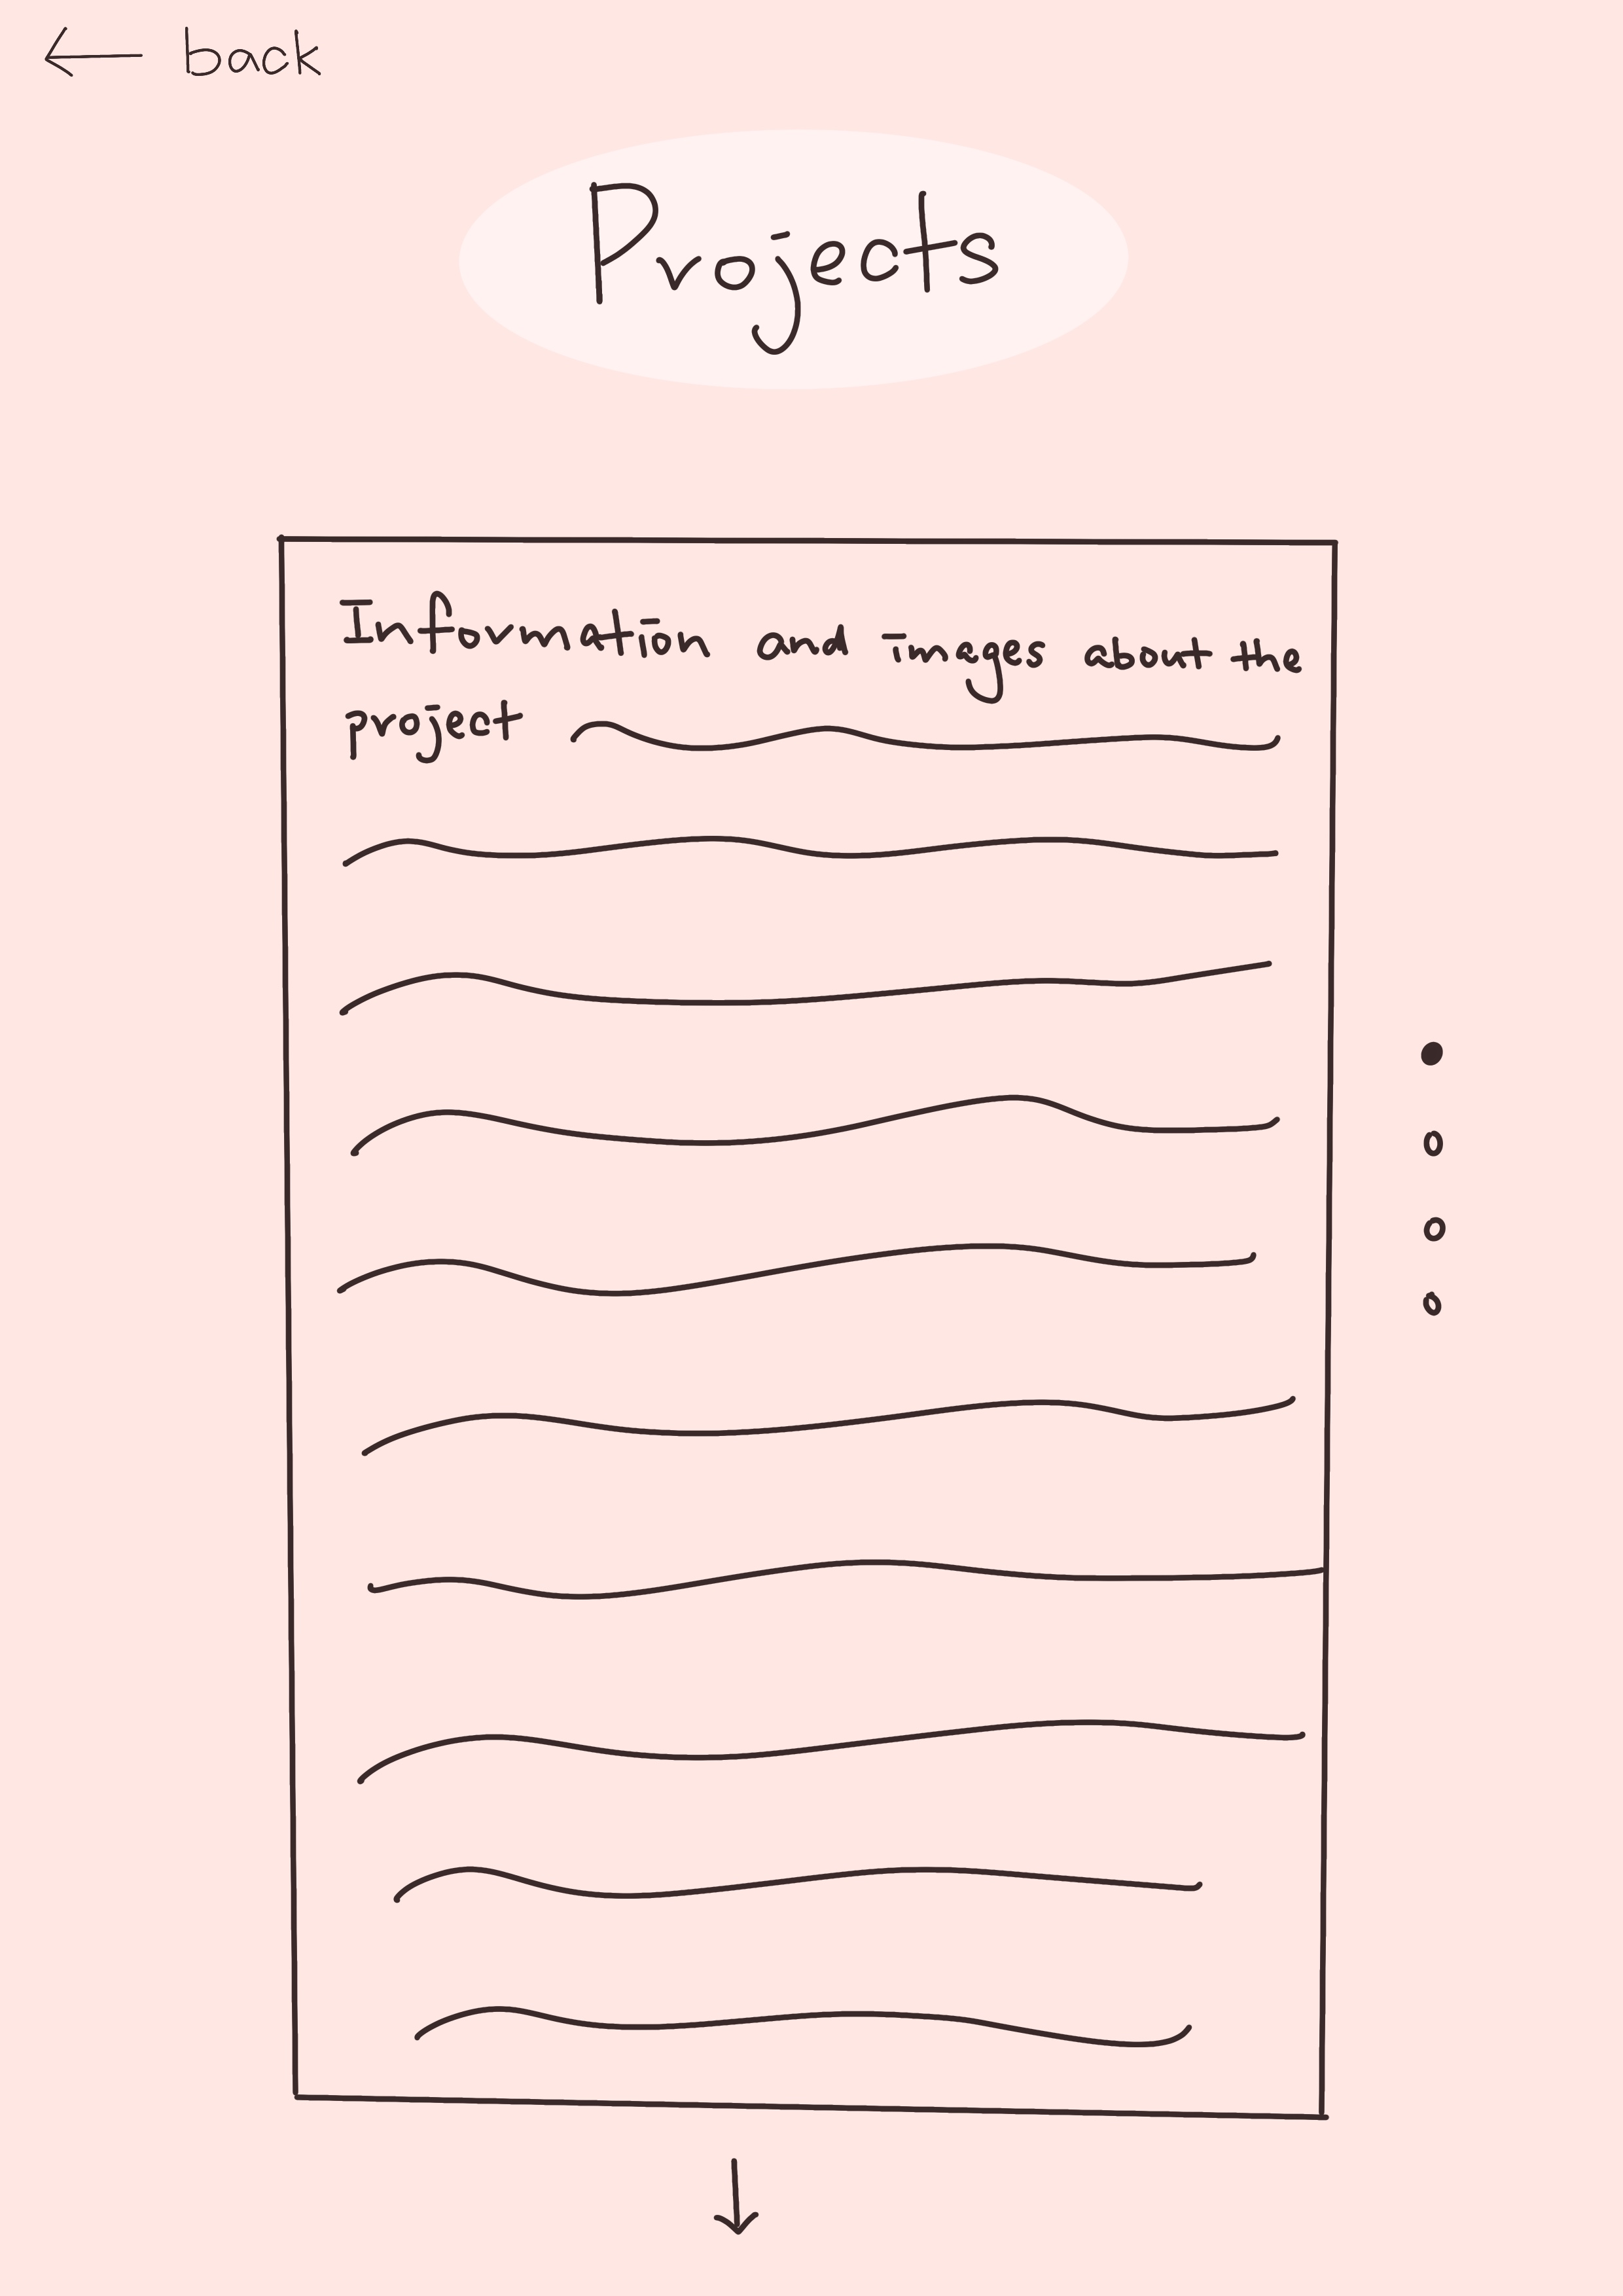 back
Projects
Information and images about the
project